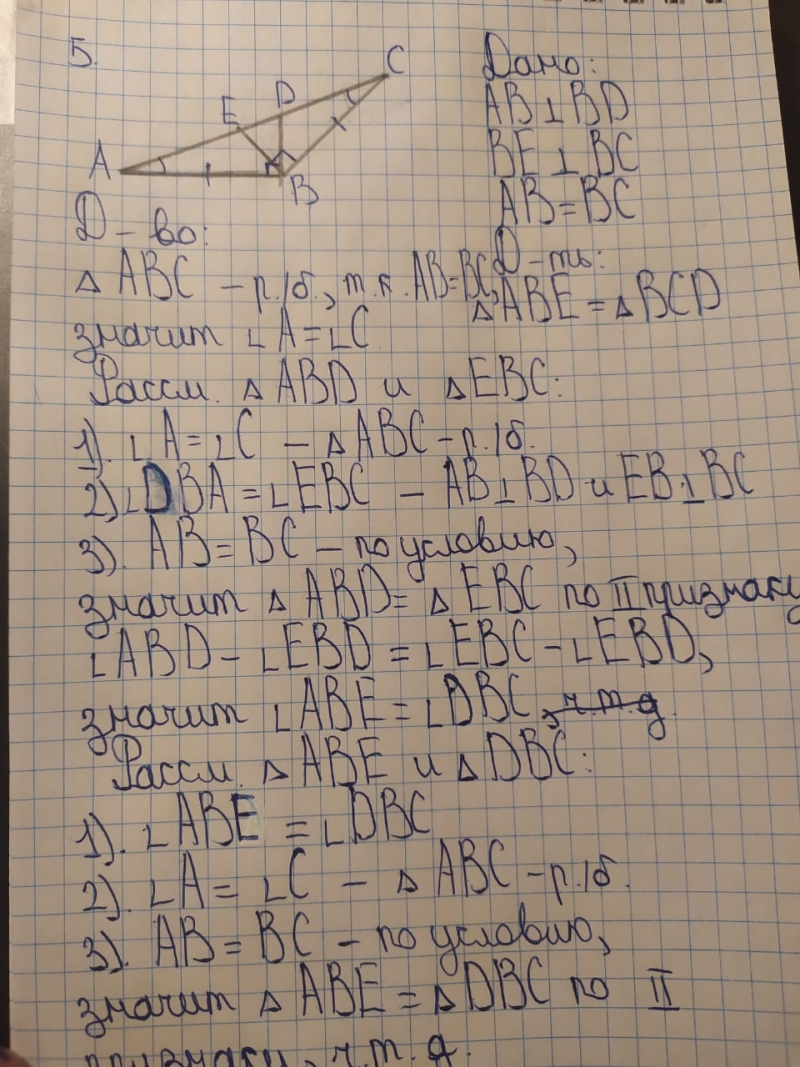 5.
C
D
E
A
B
Дано:
AB⊥BD
BE⊥BC
AB=BC
Д-ть:
△ABE=△BCD
Д-во:
△ABC – р/б, т.к. AB=BC,
значит ∠A=∠C
Рассм. △ABD и △EBC:
1). ∠A=∠C – △ABC – р/б.
2) ∠DBA=∠EBC – AB⊥BD и EB⊥BC
3). AB=BC – по условию,
значит △ABD=△EBC по II признаку
∠ABD – ∠EBD = ∠EBC – ∠EBD,
значит ∠ABE=∠DBC, ч.т.д.
Рассм. △ABE и △DBC:
1). ∠ABE = ∠DBC
2). ∠A= ∠C – △ABC – р/б.
3). AB= BC – по условию,
значит △ABE=△DBC по II
признаку, ч.т.д.